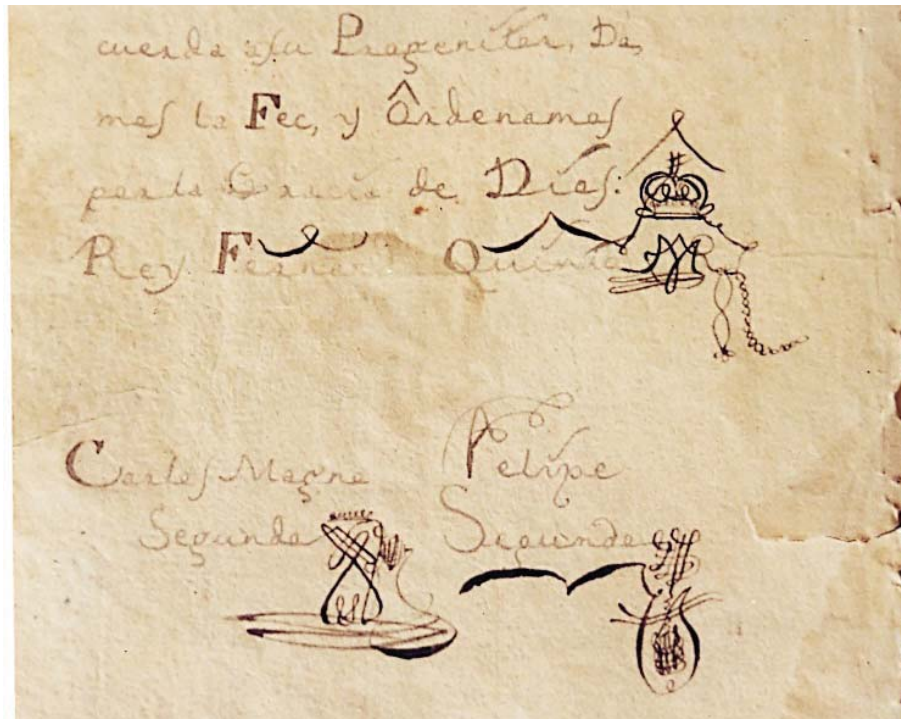 cuerda a su Progenitor, Da,
mos la Fee, y Ôrdenamos
por la Gracia de Díos:
Rey Fernan Quinto
Carlos Magno Felipe
Segundo Segundo